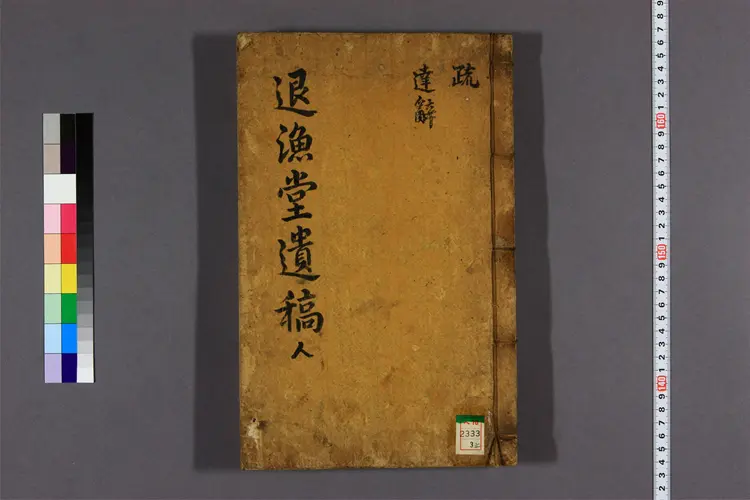 疏
達辭
退漁堂遺稿 人
2333